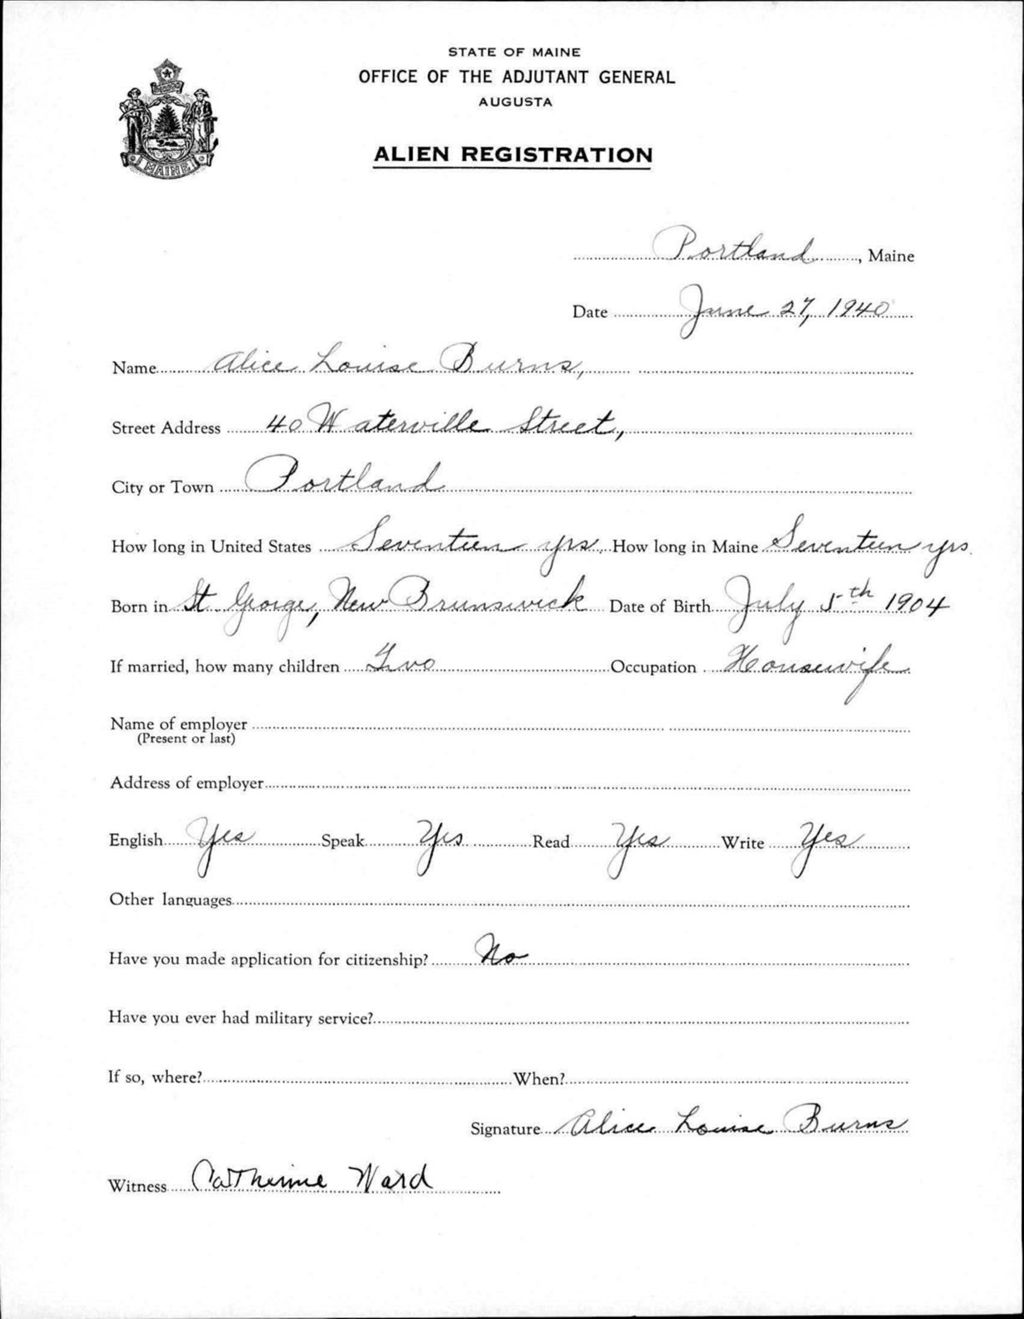 STATE OF MAINE
OFFICE OF THE ADJUTANT GENERAL
AUGUSTA
ALIEN REGISTRATION
MAINE
Portland, Maine
Date June 27, 1940
Name Alice Louise Burns,
Street Address 40 Waterville Street,
City or Town Portland
How long in United States Seventeen yrs. How long in Maine Seventeen yrs.
Born in St. George, New Brunswick Date of Birth July 5th 1904
If married, how many children Two Occupation Housewife
Name of employer
(Present or last)
Address of employer
English Yes Speak Yes Read Yes Write Yes
Other languages
Have you made application for citizenship? No
Have you ever had military service?
If so, where? When?
Signature Alice Louise Burns
Witness Catherine Ward